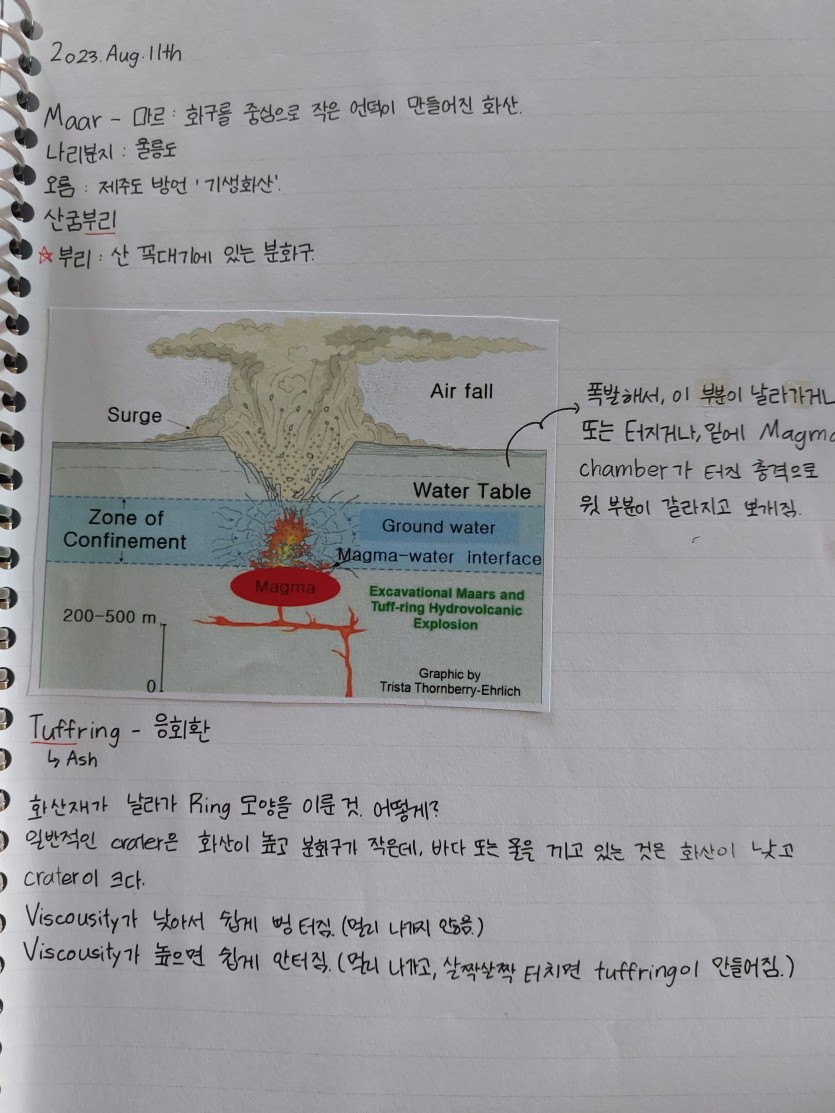 2023.Aug.11th
Maar - 마르 : 화구를 중심으로 작은 언덕이 만들어진 화산.
나리분지 : 울릉도
오름 : 제주도 방언 '기생화산'.
산굼부리
☆부리 : 산 꼭대기에 있는 분화구.
Air fall
Surge
Water Table
Zone of
Confinement
Ground water
Magma-water interface
Magma
200-500 m
0
Excavational Maars and
Tuff-ring Hydrovolcanic
Explosion
Graphic by
Trista Thornberry-Ehrlich
폭발해서, 이 부분이 날라가거나
또는 터지거나, 밑에 Magma
chamber가 터진 충격으로
윗 부분이 갈라지고 뽀개짐.
Tuffring - 응회환
↳ Ash
화산재가 날라가 Ring 모양을 이룬 것. 어떻게?
일반적인 crater은 화산이 높고 분화구가 작은데, 바다 또는 물을 끼고 있는 것은 화산이 낮고
crater이 크다.
Viscousity가 낮아서 쉽게 뻥 터짐. (멀리 나가지 않음.)
Viscousity가 높으면 쉽게 안터짐. (멀리 나가고, 살짝살짝 터치면 tuffring이 만들어짐.)